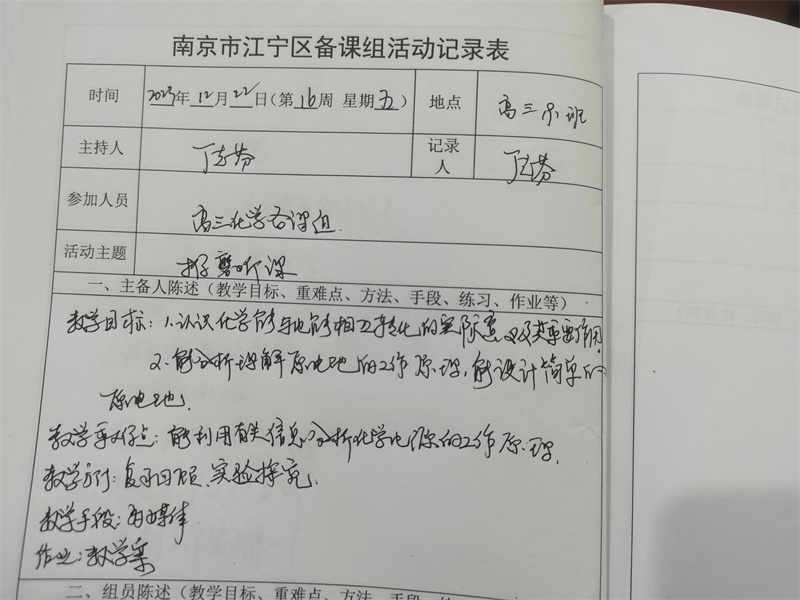 南京市江宁区备课组活动记录表
时间 2023年12月22日(第16周 星期五) 地点 高三 班
主持人 丁 芬 记录人 丁 芬
参加人员 高三化学备课组
活动主题 听课
一、主备人陈述(教学目标、重难点、方法、手段、练习、作业等)
教学目标:1.认识化学能与电能相互转化的实际意义及其重要作用
2.能分析理解原电池的工作原理,能设计简单的
原电池.
教学重难点:能利用有关信息分析化学电源的工作原理.
教学方法:复习回顾、实验探究.
教学手段:多媒体
作业:教学案
二、组员陈述(教学目标、重难点、方法、手段、